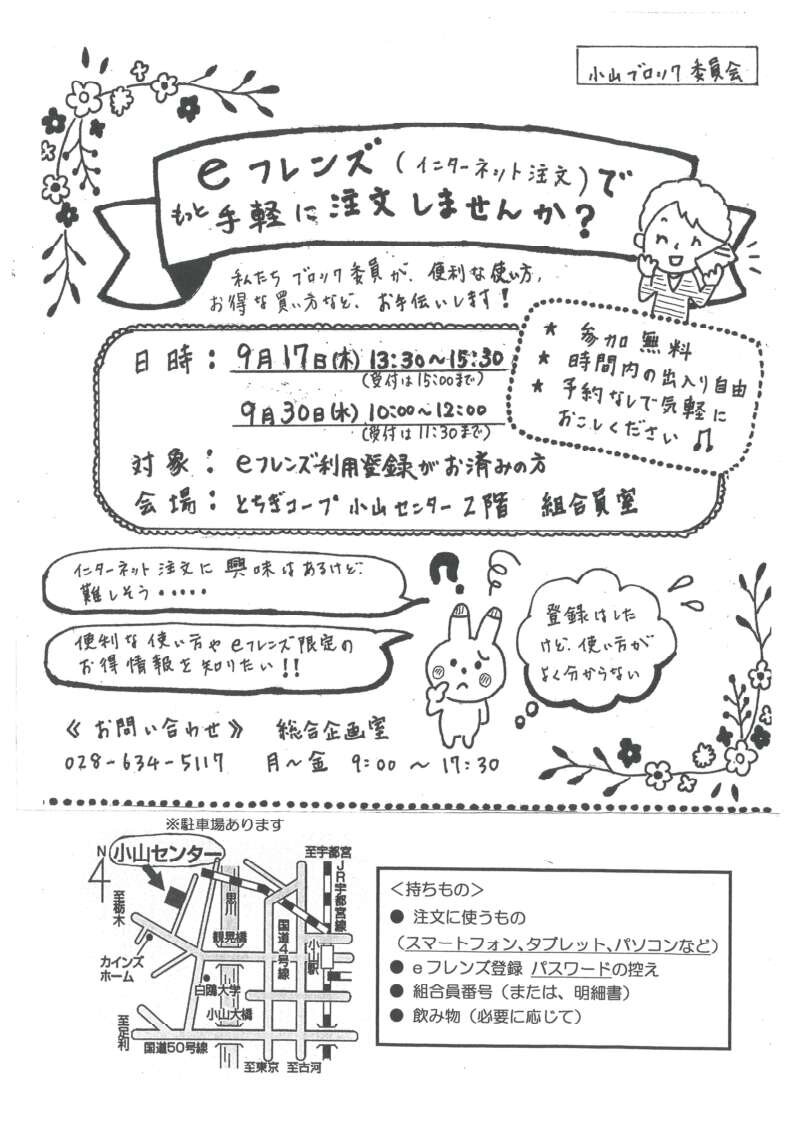 小山ブロック委員会
eフレンズ(インターネット注文)で
もっと手軽に注文しませんか?
私たちブロック委員が、便利な使い方、
お得な買い方など、お手伝いします!
★ 参加無料
★ 時間内の出入り自由
★ 予約なしで気軽に
おこしください♫
日時:9月17日(木)13:30~15:30
(受付は15:00まで)
9月30日(水)10:00~12:00
(受付は11:30まで)
対象:eフレンズ利用登録がお済みの方
会場:とちぎコープ小山センター2階 組合員室
インターネット注文に興味はあるけど、
難しそう・・・・・
便利な使い方やeフレンズ限定の
お得情報を知りたい!!
登録はした
けど、使い方が
よく分からない
《お問い合わせ》 総合企画室
028-634-5117 月~金 9:00 ~ 17:30
※駐車場あります
N
小山センター
至宇都宮
JR宇都宮線
至栃木
思川
観晃橋
国道4号線
小山駅
カインズ
ホーム
白鴎大学
小山大橋
至足利
国道50号線
至東京
至古河
<持ちもの>
● 注文に使うもの
(スマートフォン、タブレット、パソコンなど)
● eフレンズ登録 パスワードの控え
● 組合員番号(または、明細書)
● 飲み物(必要に応じて)